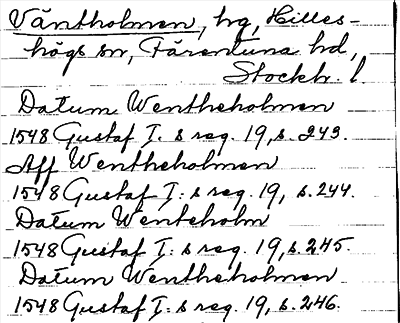 Väntholmen, hg, Hilles-
högs sn, Färentuna hd,
Stockh. l.
Datum Wentheholmen
1548 Gustaf I: s reg. 19, s. 243.
Aff Wentheholmen
1548 Gustaf I: s reg. 19, s. 244.
Datum Wenteholm
1548 Gustaf I: s reg. 19, s. 245.
Datum Wentheholmen
1548 Gustaf I: s reg. 19, s. 246.